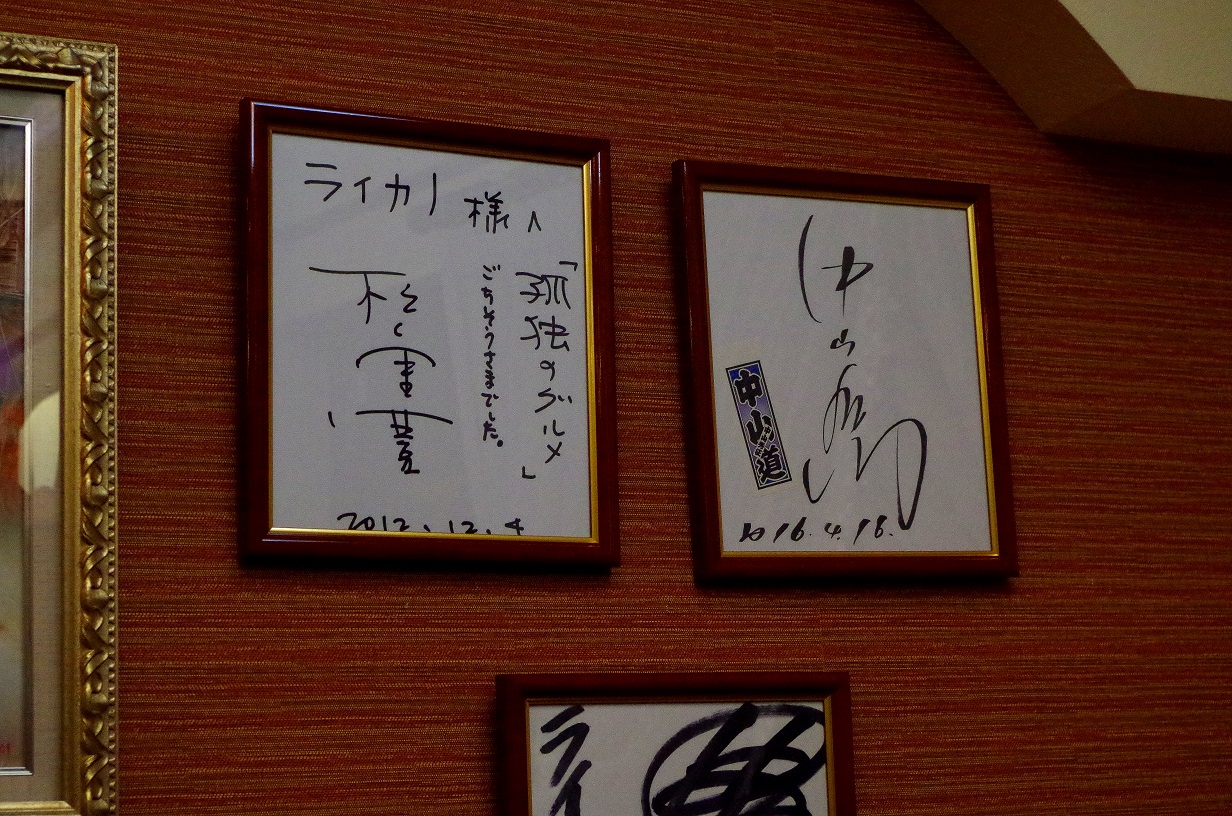 ライカノ様へ
「孤独のグルメ」
ごちそうさまでした。
松重豊
2012.12.4
中山道
2016.4.18.
ライ